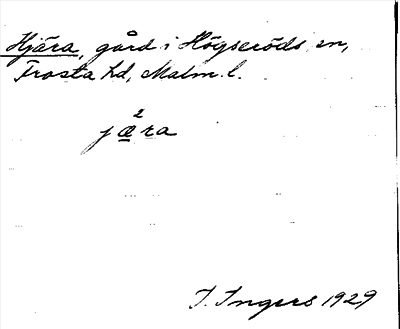 Hjära, gård i Högseröds sn,
Frosta hd, Malm. l.
2
jæra
I. Ingers 1929